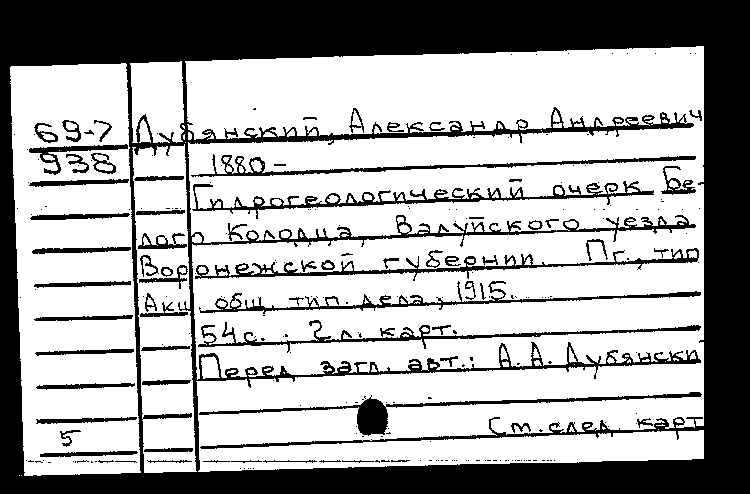 69-7 Дубянский, Александр Андреевич
938 1880-
Гидрогеологический очерк Бе-
лого Колодца, Валуйского уезда
Воронежской губернии. Пг., тип
Акц. общ. тип. дела, 1915.
54 с. ; 2 л. карт.
Перед загл. авт.: А.А. Дубянски
5 См. след. карт